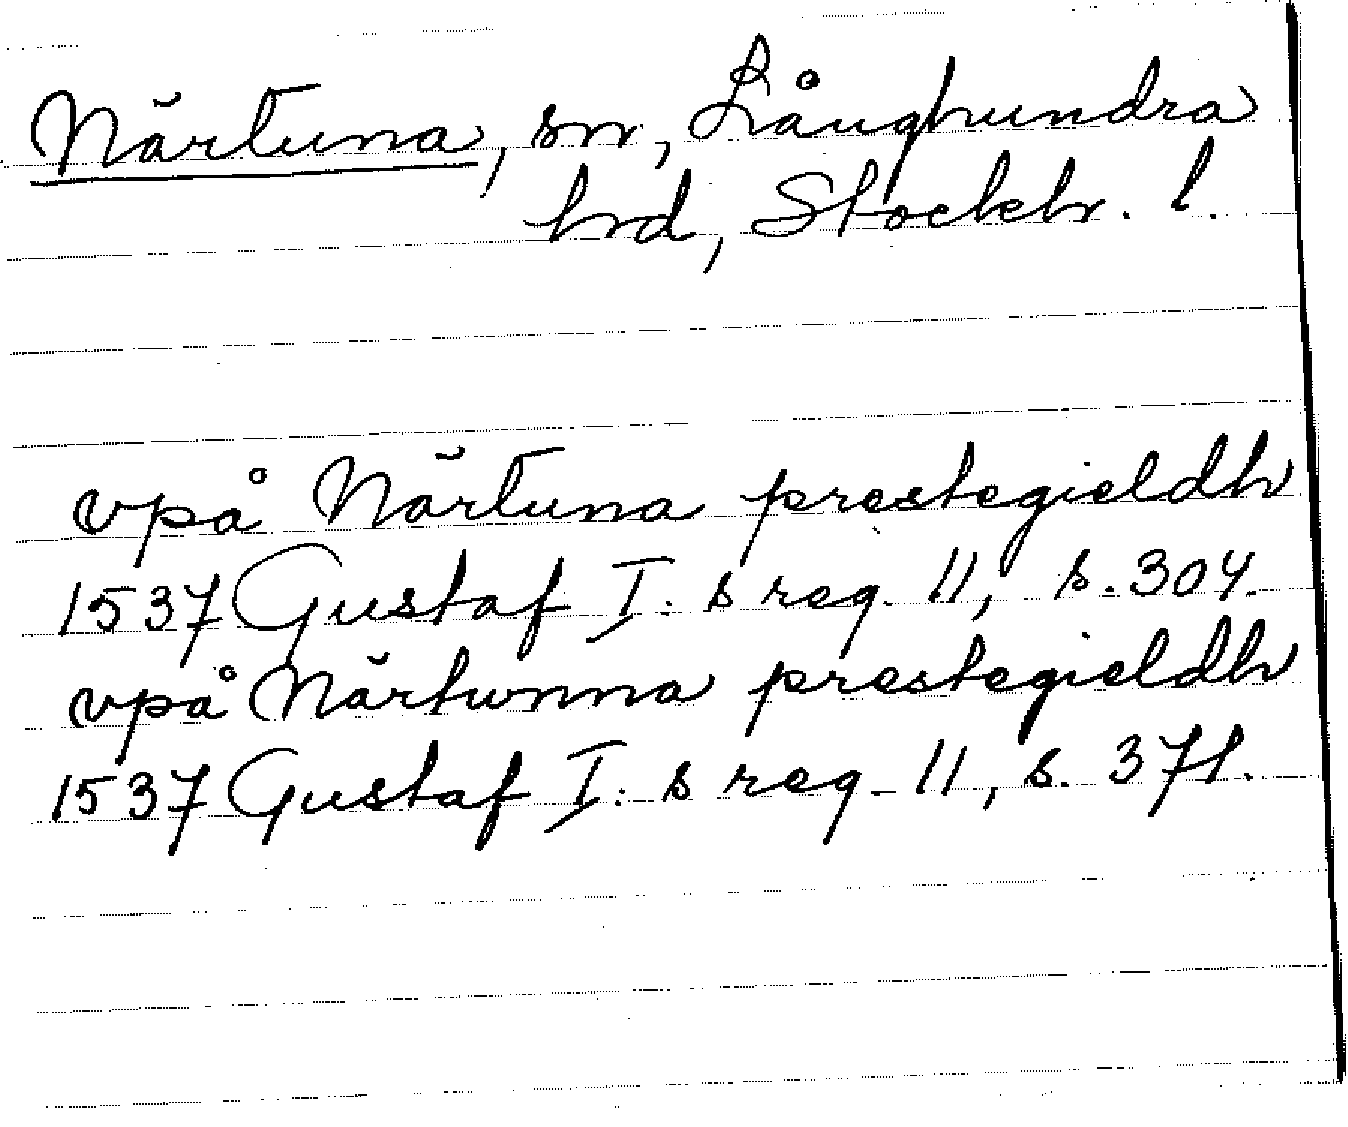 Närtuna, sn, Långhundra
hrd, Stockh. l.
vpå Närtuna prestegieldh
1537 Gustaf I: s reg. 11, s. 304.
vpå Närtunna prestegieldh
1537 Gustaf I: s reg. 11, s. 371.